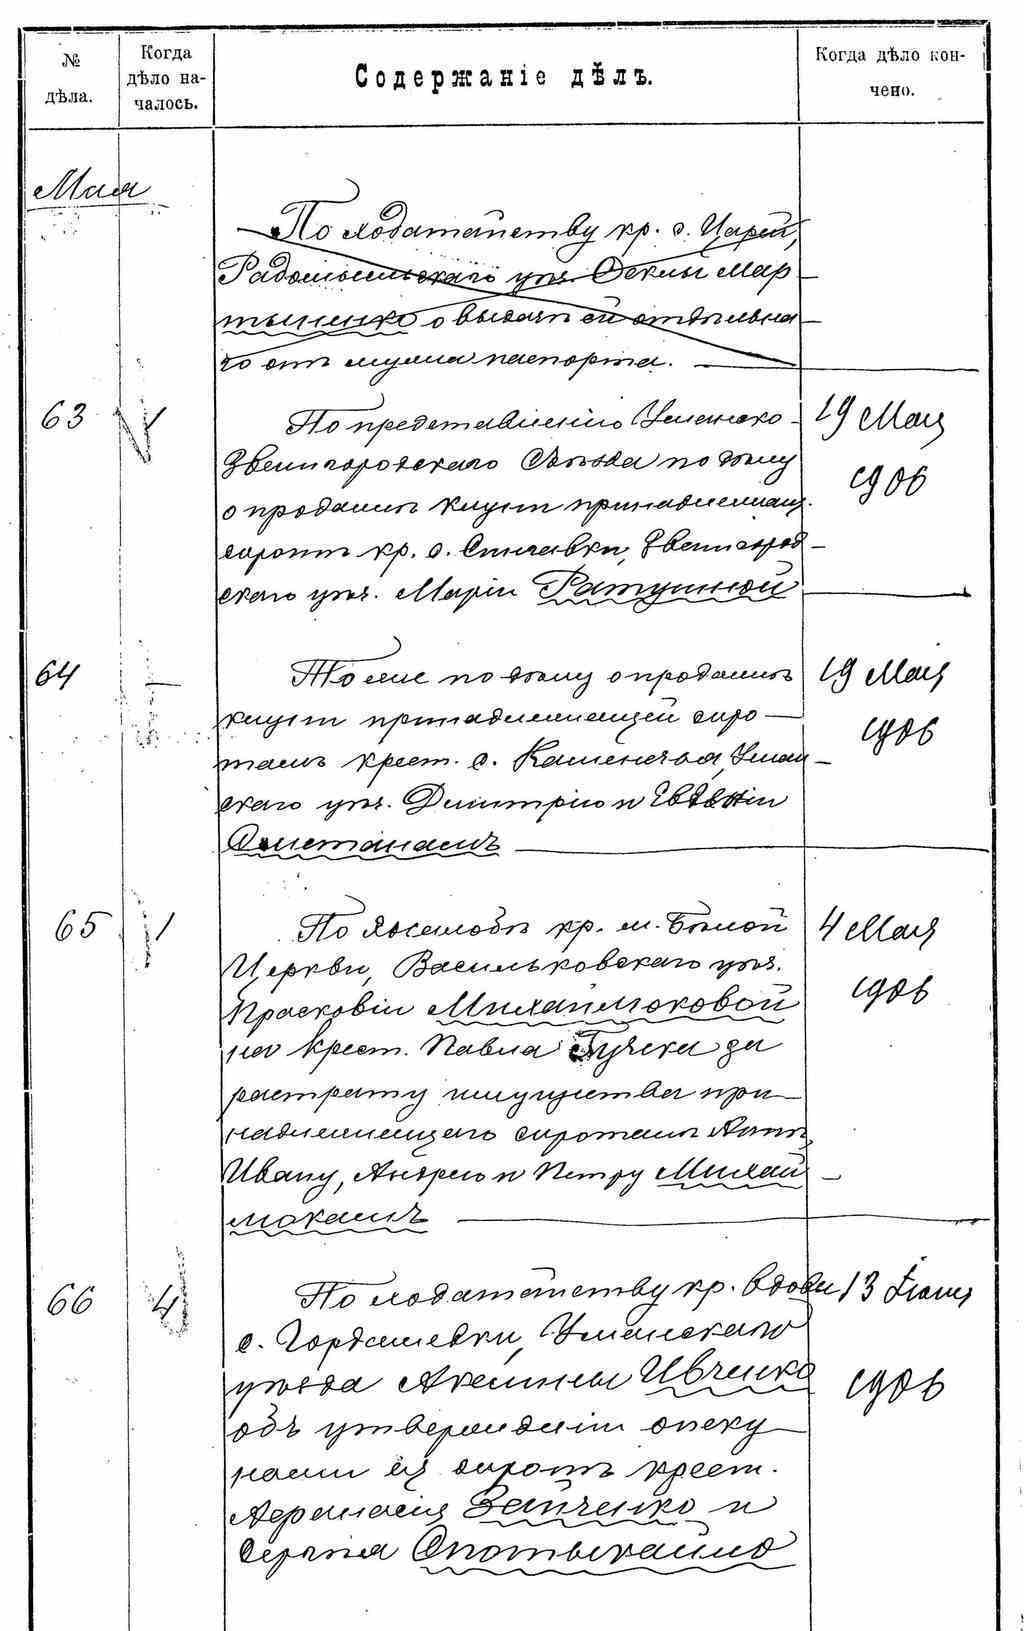 № дѣла.
Когда дѣло на-
чалось.
Содержаніе дѣлъ.
Когда дѣло кон-
чено.
Мая
По ходатайству кр. с.
Радомысльскаго уѣз. Феклы Мар
тыненко о выдачѣ ей отдѣльна
го отъ мужа паспорта.
63
По представленію Уманско-
19 Мая
Звенигородскаго Съѣзда по дѣлу
1906
о продажѣ принадлежащ.
сиротѣ кр. с. Звенигород
скаго уѣз. Маріи Ратушной
64
То же по дѣлу о продажѣ
19 Мая
принадлежащей сиро
1906
тамъ крест. с. Каменечья, Уман
скаго уѣз. Димитрію и
Сметанамъ
65
1
По жалобѣ кр. м. Бѣлой
4 Мая
Церкви, Васильковскаго уѣз.
1906
Прасковіи Михайлюковой
на крест. Павла за
растрату имущества при
надлежащаго сиротамъ
Ивану, Андрею и Петру Михай
люкамъ
66
4
По ходатайству кр. вдовы
13 Іюня
с. Гордашевки, Уманскаго
уѣзда Акелины Ивченко
1906
объ утвержденіи опеку
нами ея сиротъ крест.
Афанасія Зайченко и
Сергѣя Спотыкайло